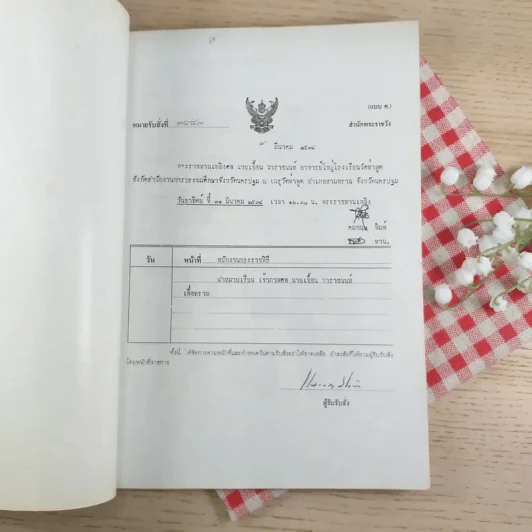 (แบบ ค.)
หมายรับสั่งที่ สำนักพระราชวัง
มีนาคม ๒๕๓๔
พระราชทานเพลิงศพ นายเอื้อน วาราชนนท์ อาจารย์ใหญ่โรงเรียนวัดท่าพูด
สังกัดสำนักงานการประถมศึกษาจังหวัดนครปฐม ณ เมรุวัดท่าพูด อำเภอสามพราน จังหวัดนครปฐม
วันอาทิตย์ ที่ ๓๑ มีนาคม ๒๕๓๔ เวลา ๑๖.๐๐ น. พระราชทานเพลิง
พิมพ์
ทาน.
วัน หน้าที่ พนักงานพระราชพิธี
นำหมายเรียน เจ้าภาพศพ นายเอื้อน วาราชนนท์
เพื่อทราบ
ทั้งนี้ ให้จัดการตามหน้าที่และกำหนดวันตามรับสั่งอย่าให้ขาดเหลือ ถ้าสงสัยก็ให้ถามผู้รับรับสั่ง
โดยหน้าที่ราชการ
ผู้รับรับสั่ง